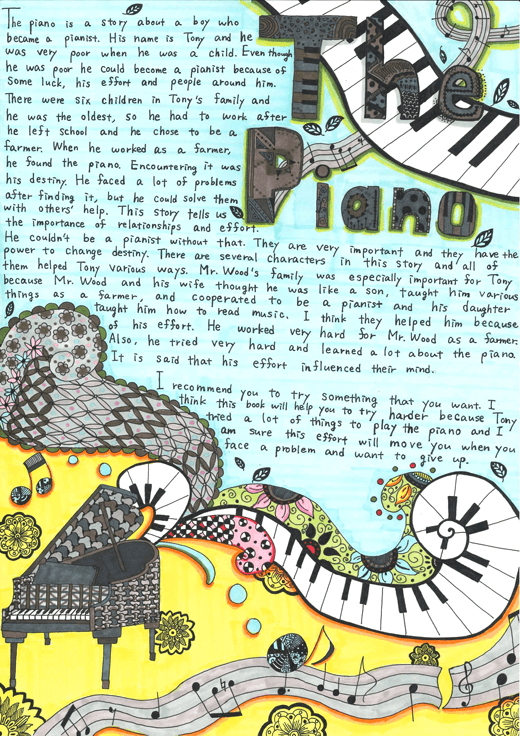 The Piano
The piano is a story about a boy who
became a pianist. His name is Tony and he
was very poor when he was a child. Even though
he was poor he could become a pianist because of
some luck, his effort and people around him.
There were six children in Tony's family and
he was the oldest, so he had to work after
he left school and he chose to be a
farmer. When he worked as a farmer,
he found the piano. Encountering it was
his destiny. He faced a lot of problems
after finding it, but he could solve them
with others' help. This story tells us
the importance of relationships and effort.
He couldn't be a pianist without that. They are very important and they have the
power to change destiny. There are several characters in this story and all of
them helped Tony various ways. Mr. Wood's family was especially important for Tony
because Mr. Wood and his wife thought he was like a son, taught him various
things as a farmer, and cooperated to be a pianist and his daughter
taught him how to read music. I think they helped him because
of his effort. He worked very hard for Mr. Wood as a farmer.
Also, he tried very hard and learned a lot about the piano.
It is said that his effort influenced their mind.
I recommend you to try something that you want. I
think this book will help you to try harder because Tony
tried a lot of things to play the piano and I
am sure this effort will move you when you
face a problem and want to give up.